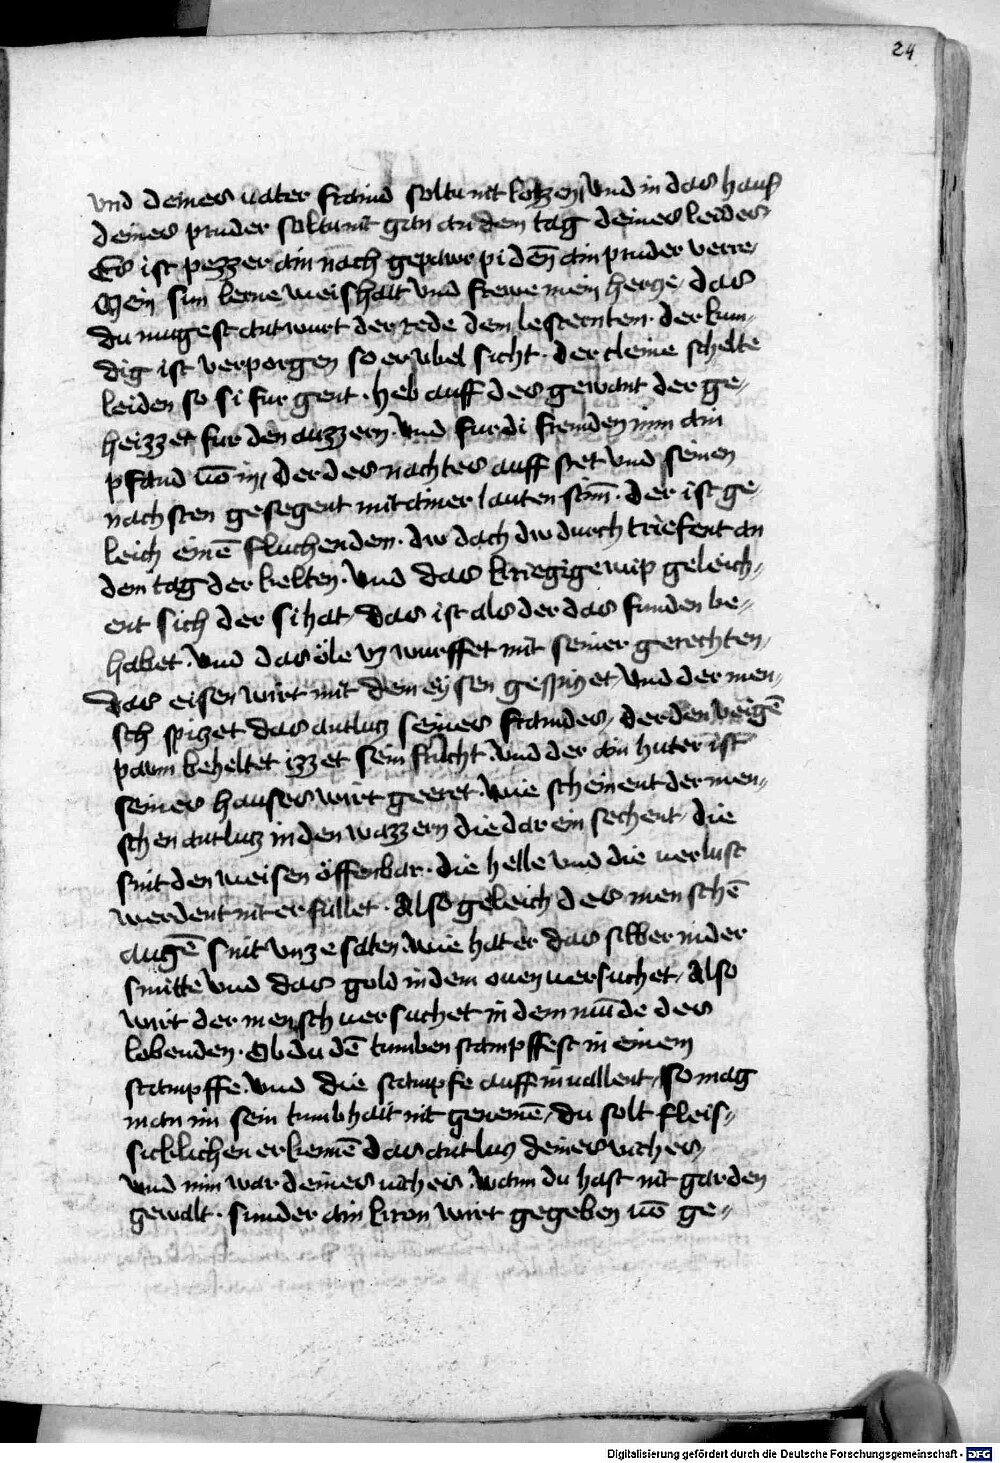 24
vnd deines uater fraind soltu nit lozzen vnd in das haus
deines pruder soltu nit gan an dem tag deines leides
Es ist pezzer ain nach gepawr pi den̄ ain pruder verre
Mein sun lerne weishait vnd frewe mein hercze das
du mugest antwurt der rede dem lesternten · der kun-
dig ist verporgen so er vbel sicht · der cleine schelte
leiden so si fur gent · heb auff des gewant der ge-
heizzet fur den auzzern · vnd fur di fremden nim ain
pfand uō im der des nachtes auff stet vnd seinen
nachsten gesegent mit ainer lauten stim̄ · der ist ge-
leich einē fluchenden · dw dach dw durch triefent an
dem tag der kelten · vnd das kriegig weip geleich-
ent sich der si hat das ist als der das funden be-
habet · vnd das öle vz wurffet mit seiner gerechten
das eisen wirt mit dem eysen gespiczet vnd der men-
sch spiczet das antlutz seines fraindes · der den veigē
pawm beheltet izzet sein frucht vnd der ain huter ist
seines hauses wirt geeret · wie scheinent der men-
schen antlutz in den wazzern die dar ein sechent · die
sint den weisen öffenbar · die helle vnd die uerlust
werdent nit erfullet · Also geleich des menschē
augē sint vnze saten wie hat er das silber in der
smitte vnd das gold in dem ouen uersuchet · Also
wirt der mensch uersuchet in dem mūde des
lobenden · Ob du dē tumben stampffest in einem
stampffe · vnd die stampfe auff in uallent so mag
man im sein tumbhait nit genemē du solt fleis-
sicklichen erkennē das antlutz deines viches
vnd nim war deines viches · wann du hast nit garden
gewalt · sunder ain kron wirt gegeben uō ge-
Digitalisierung gefördert durch die Deutsche Forschungsgemeinschaft - DFG